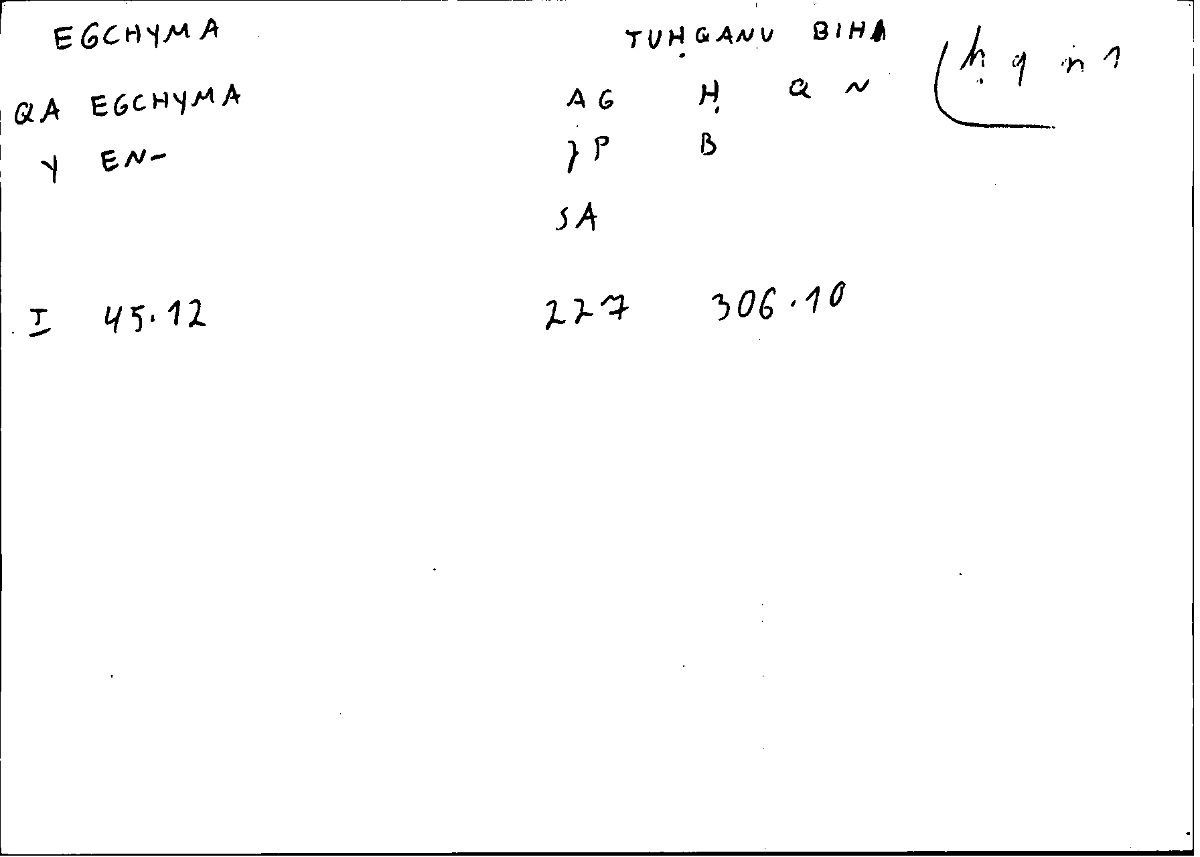 EGCHYMA TUḤQANU BIHA ḥ q n 1
QA EGCHYMA AG Ḥ Q N
Y EN- P B
SA
I 45.12 227 306.10